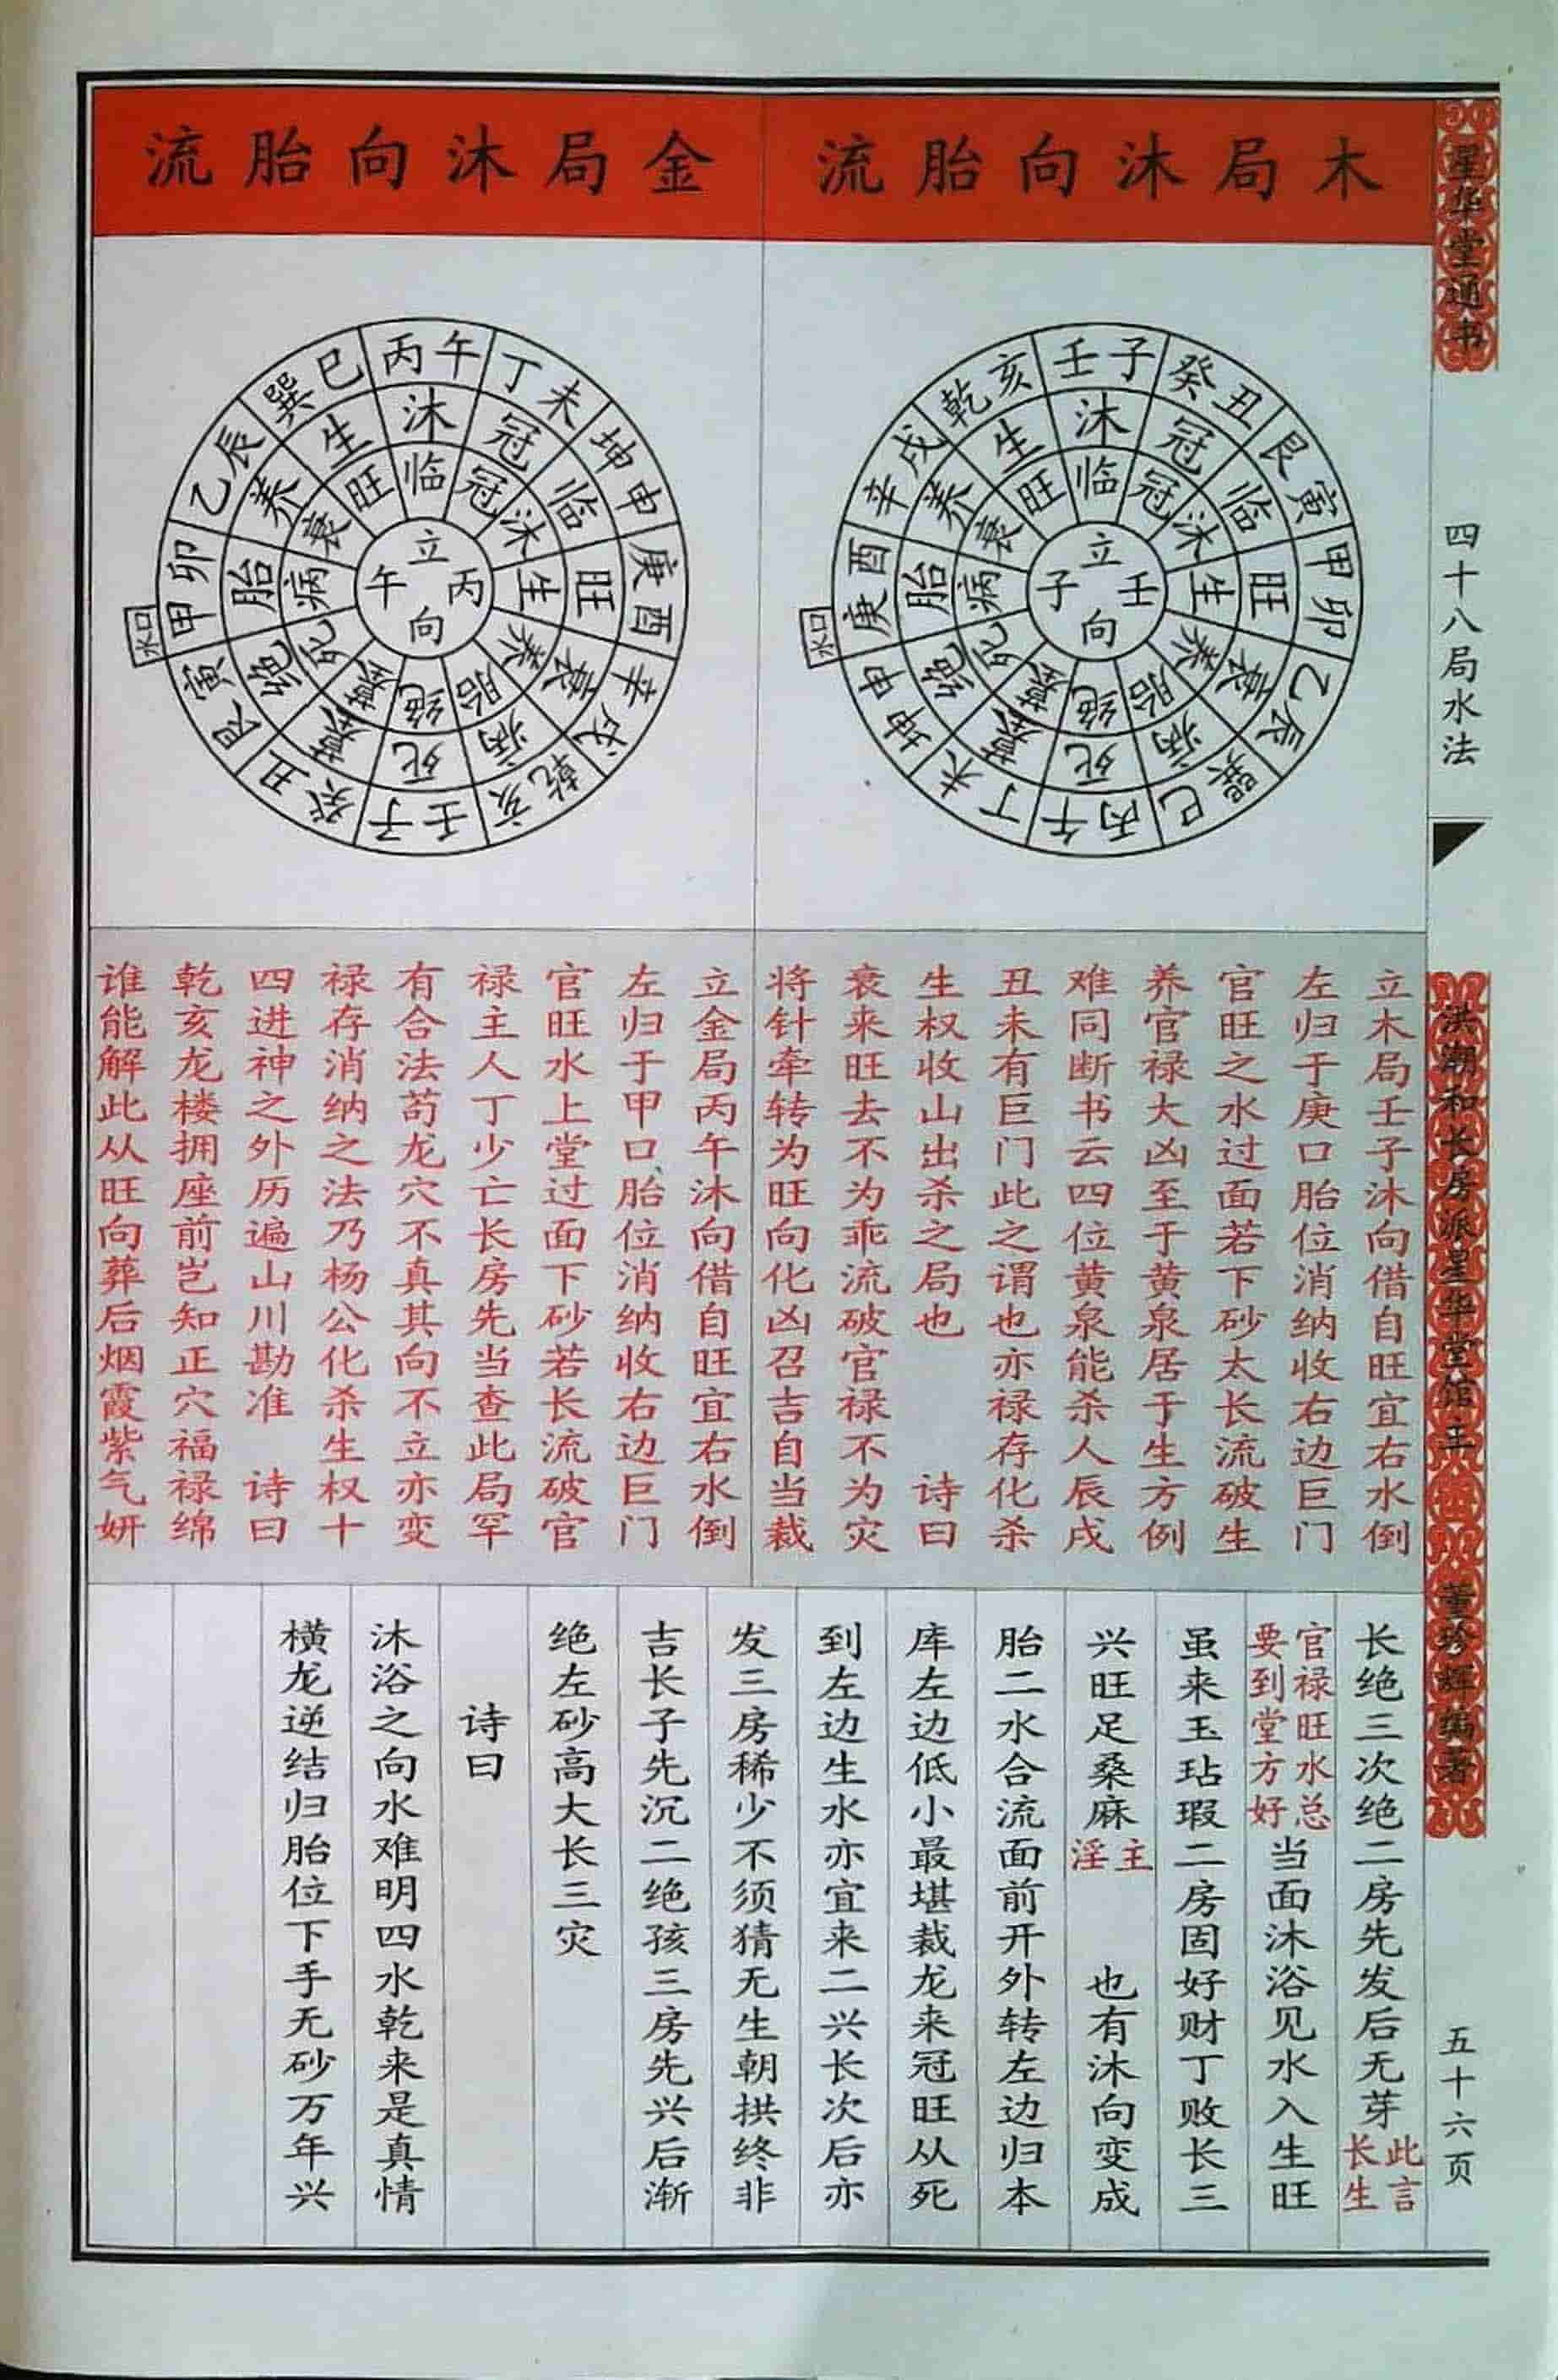 星华堂通书
四十八局水法
洪潮和长房派星华堂馆主
董珍辉编著
五十六页
木局沐向胎流
壬子
癸丑
艮寅
甲卯
乙辰
巽巳
丙午
丁未
坤申
庚酉
辛戌
乾亥
沐冠临旺衰病死墓绝胎养生
临冠沐生养胎绝墓死病衰旺
立向
子壬
水口
立木局壬子沐向借自旺宜右水倒
左归于庚口胎位消纳收右边巨门
官旺之水过面若下砂太长流破生
养官禄大凶至于黄泉居于生方例
难同断书云四位黄泉能杀人辰戌
丑未有巨门此之谓也亦禄存化杀
生权收山出杀之局也 诗曰
衰来旺去不为乖流破官禄不为灾
将针牵转为旺向化凶召吉自当裁
金局沐向胎流
丙午
丁未
坤申
庚酉
辛戌
乾亥
壬子
癸丑
艮寅
甲卯
乙辰
巽巳
沐冠临旺衰病死墓绝胎养生
临冠沐生养胎绝墓死病衰旺
立向
午丙
水口
立金局丙午沐向借自旺宜右水倒
左归于甲口胎位消纳收右边巨门
官旺水上堂过面下砂若长流破官
禄主人丁少亡长房先当查此局罕
有合法苟龙穴不真其向不立亦变
禄存消纳之法乃杨公化杀生权十
四进神之外历遍山川勘准 诗曰
乾亥龙楼拥座前岂知正穴福禄绵
谁能解此从旺向葬后烟霞紫气妍
长绝三次绝二房先发后无芽此言长生
官禄旺水总要到堂方好当面沐浴见水入生旺
虽来玉玷瑕二房固好财丁败长三
兴旺足桑麻主淫 也有沐向变成
胎二水合流面前开外转左边归本
库左边低小最堪裁龙来冠旺从死
到左边生水亦宜来二兴长次后亦
发三房稀少不须猜无生朝拱终非
吉长子先沉二绝孩三房先兴后渐
绝左砂高大长三灾
诗曰
沐浴之向水难明四水乾来是真情
横龙逆结归胎位下手无砂万年兴